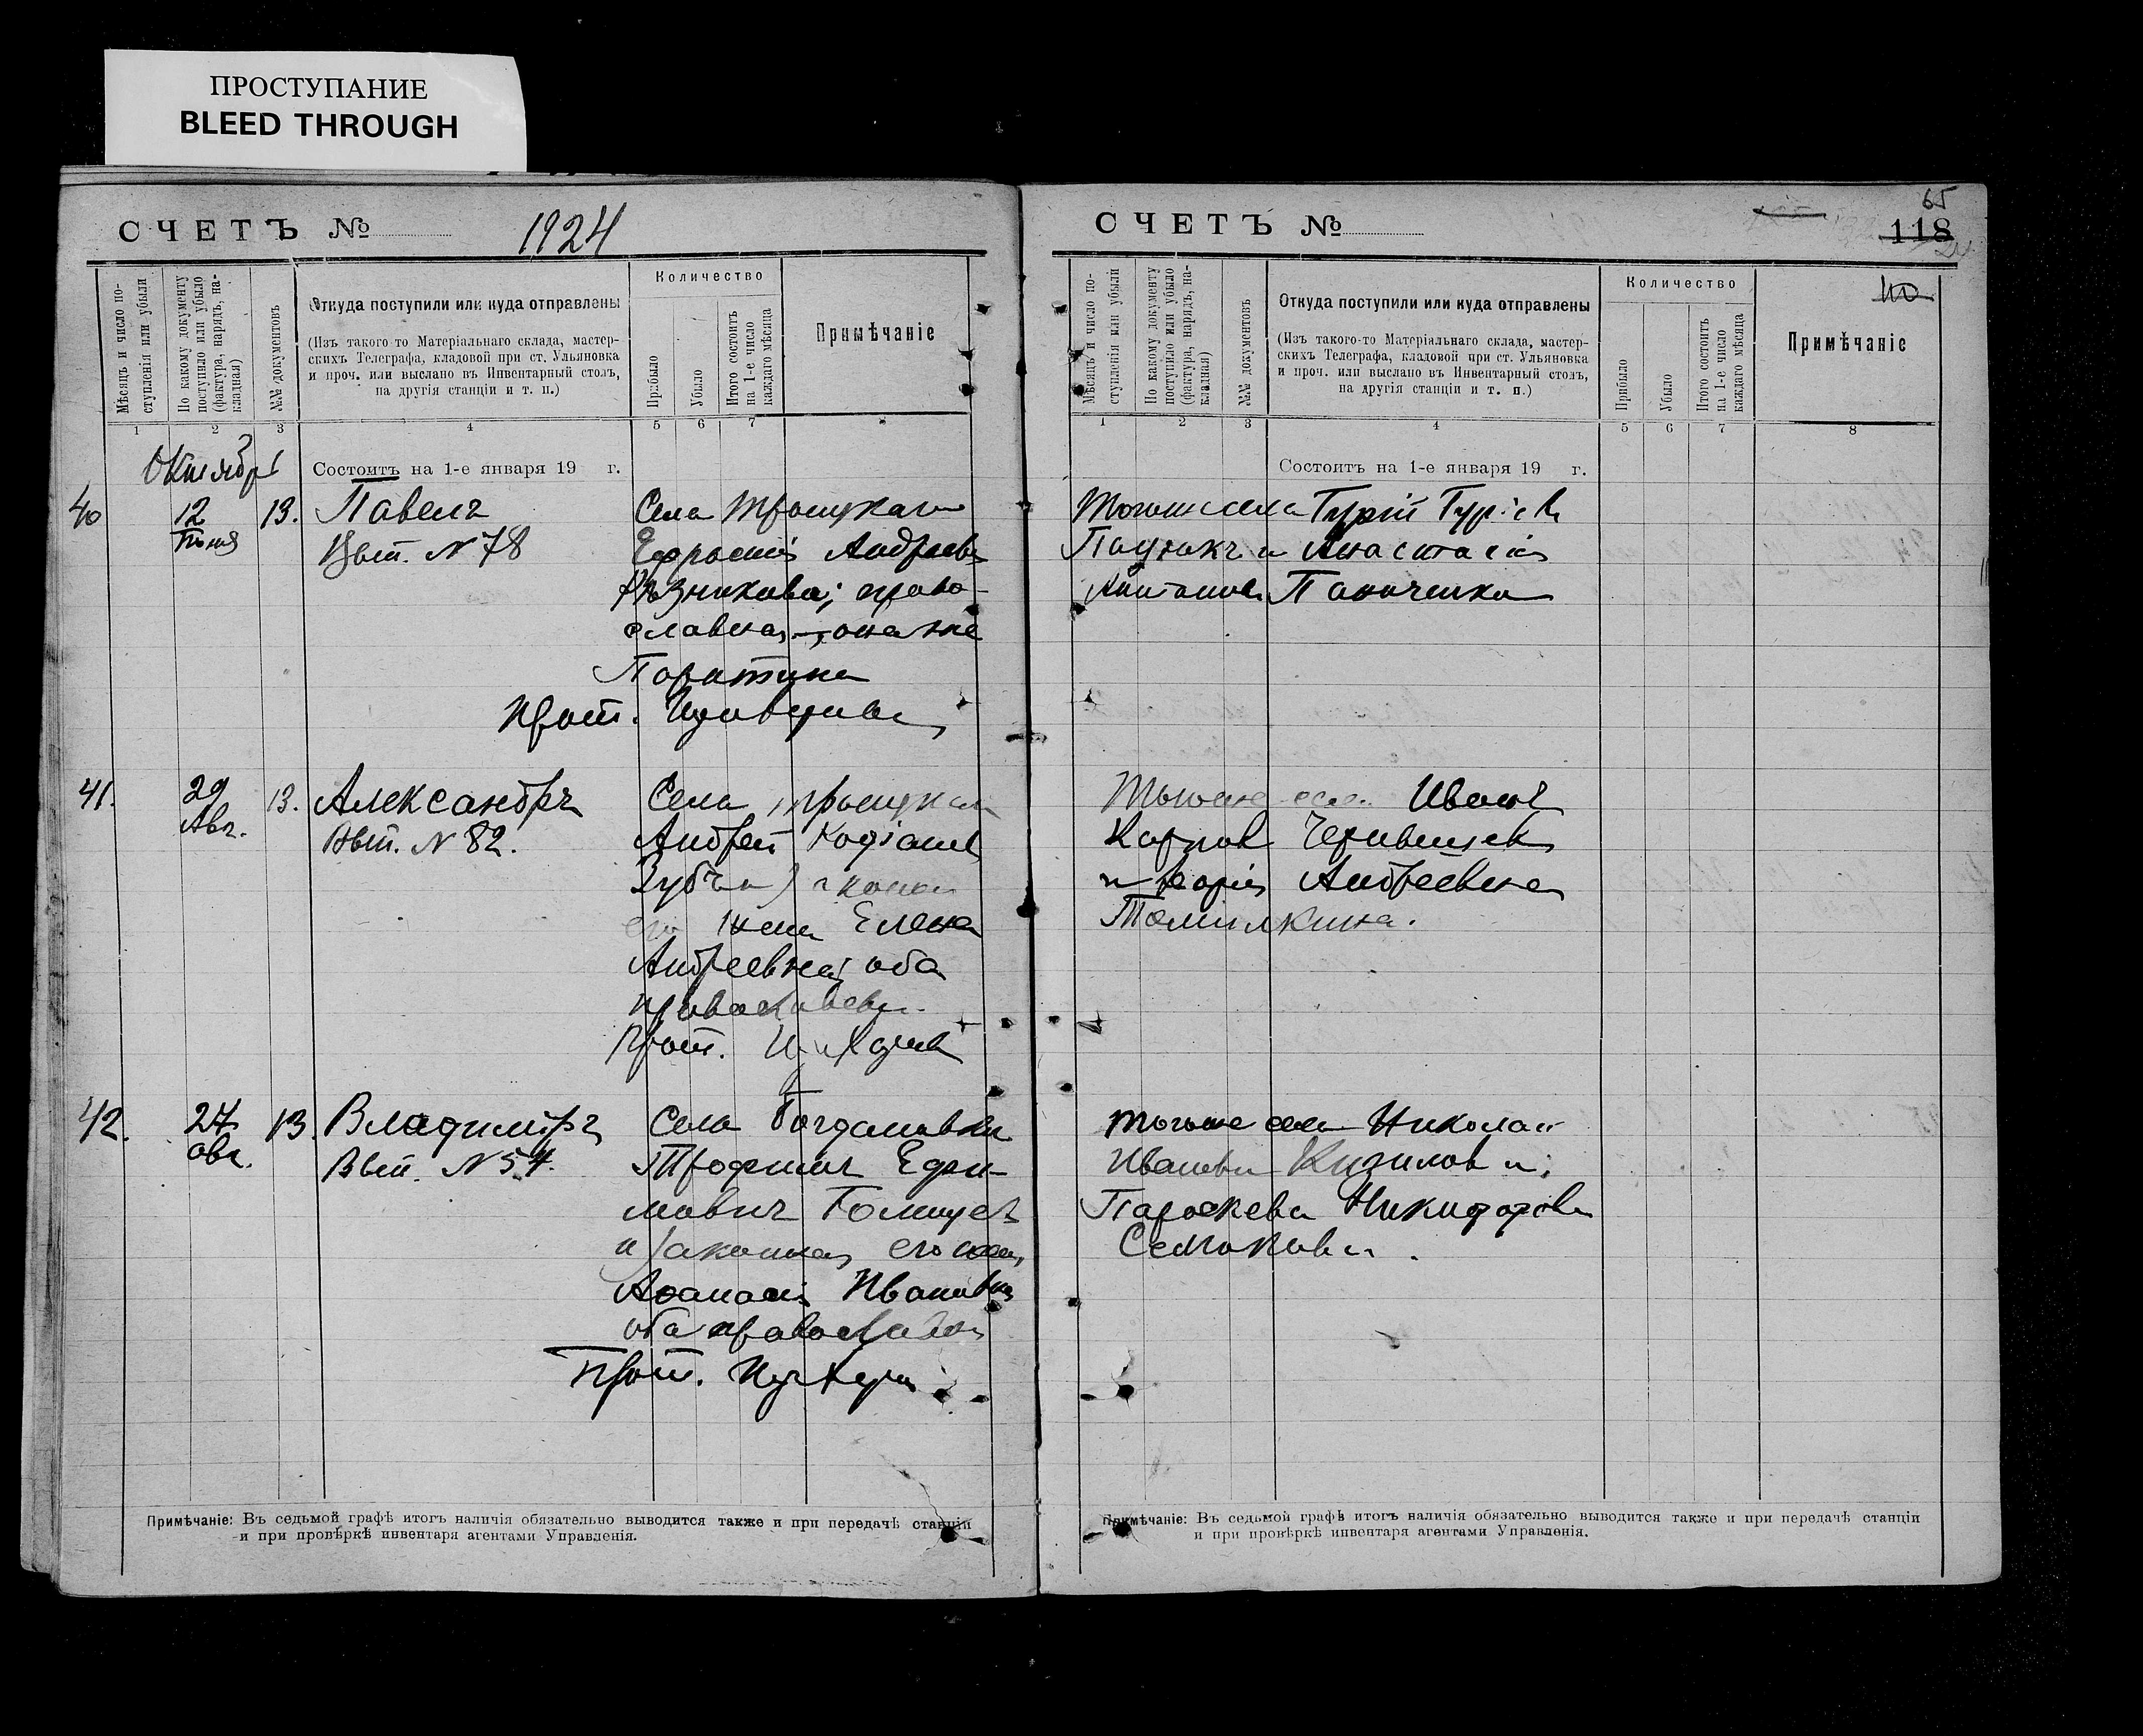 ПРОСТУПАНИЕ
BLEED THROUGH
СЧЕТЪ №
1924
Мѣсяцъ и число поступленія или убыли
По какому документу поступило или убыло (фактура, нарядъ, накладная)
№№ документовъ
Откуда поступили или куда отправлены
(Изъ такого-то Матеріальнаго склада, мастер-
скихъ Телеграфа, кладовой при ст. Ульяновка
и проч. или выслано въ Инвентарный столъ,
на другія станціи и т. п.)
Количество
Прибыло
Убыло
Итого состоитъ на 1-е число каждаго мѣсяца
Примѣчаніе
1 2 3 4 5 6 7 8
Октябрь
Состоитъ на 1-е января 19 г.
40 12 13. Павелъ Села
№ 78 Андреева
православная
Прот.
41. 29 13. Александръ Села
Авг. Выт. № 82. Андрей
его жена Елена
Андреевна; оба
православны.
Прот.
42. 27 13. Владиміръ Села Богдановки
авг. Выт. № 54. Трофимъ Ефи-
мовичъ
и законная его жена
Ивановна
оба православны
Прот.
Примѣчаніе: Въ седьмой графѣ итогъ наличія обязательно выводится также и при передачѣ станціи
и при провѣркѣ инвентаря агентами Управленія.
СЧЕТЪ №
65
118
110
Мѣсяцъ и число поступленія или убыли
По какому документу поступило или убыло (фактура, нарядъ, накладная)
№№ документовъ
Откуда поступили или куда отправлены
(Изъ такого-то Матеріальнаго склада, мастер-
скихъ Телеграфа, кладовой при ст. Ульяновка
и проч. или выслано въ Инвентарный столъ,
на другія станціи и т. п.)
Количество
Прибыло
Убыло
Итого состоитъ на 1-е число каждаго мѣсяца
Примѣчаніе
1 2 3 4 5 6 7 8
Состоитъ на 1-е января 19 г.
Тогоже села Гурій Гуріев
и Анастасія
Антонова Панченко
Тогоже села Иванъ
Карпов
и Марія Андреевна
Томилкина.
Тогоже села Николай
Иванови Кизилов и
Параскева Никифорова
Примѣчаніе: Въ седьмой графѣ итогъ наличія обязательно выводится также и при передачѣ станціи
и при провѣркѣ инвентаря агентами Управленія.